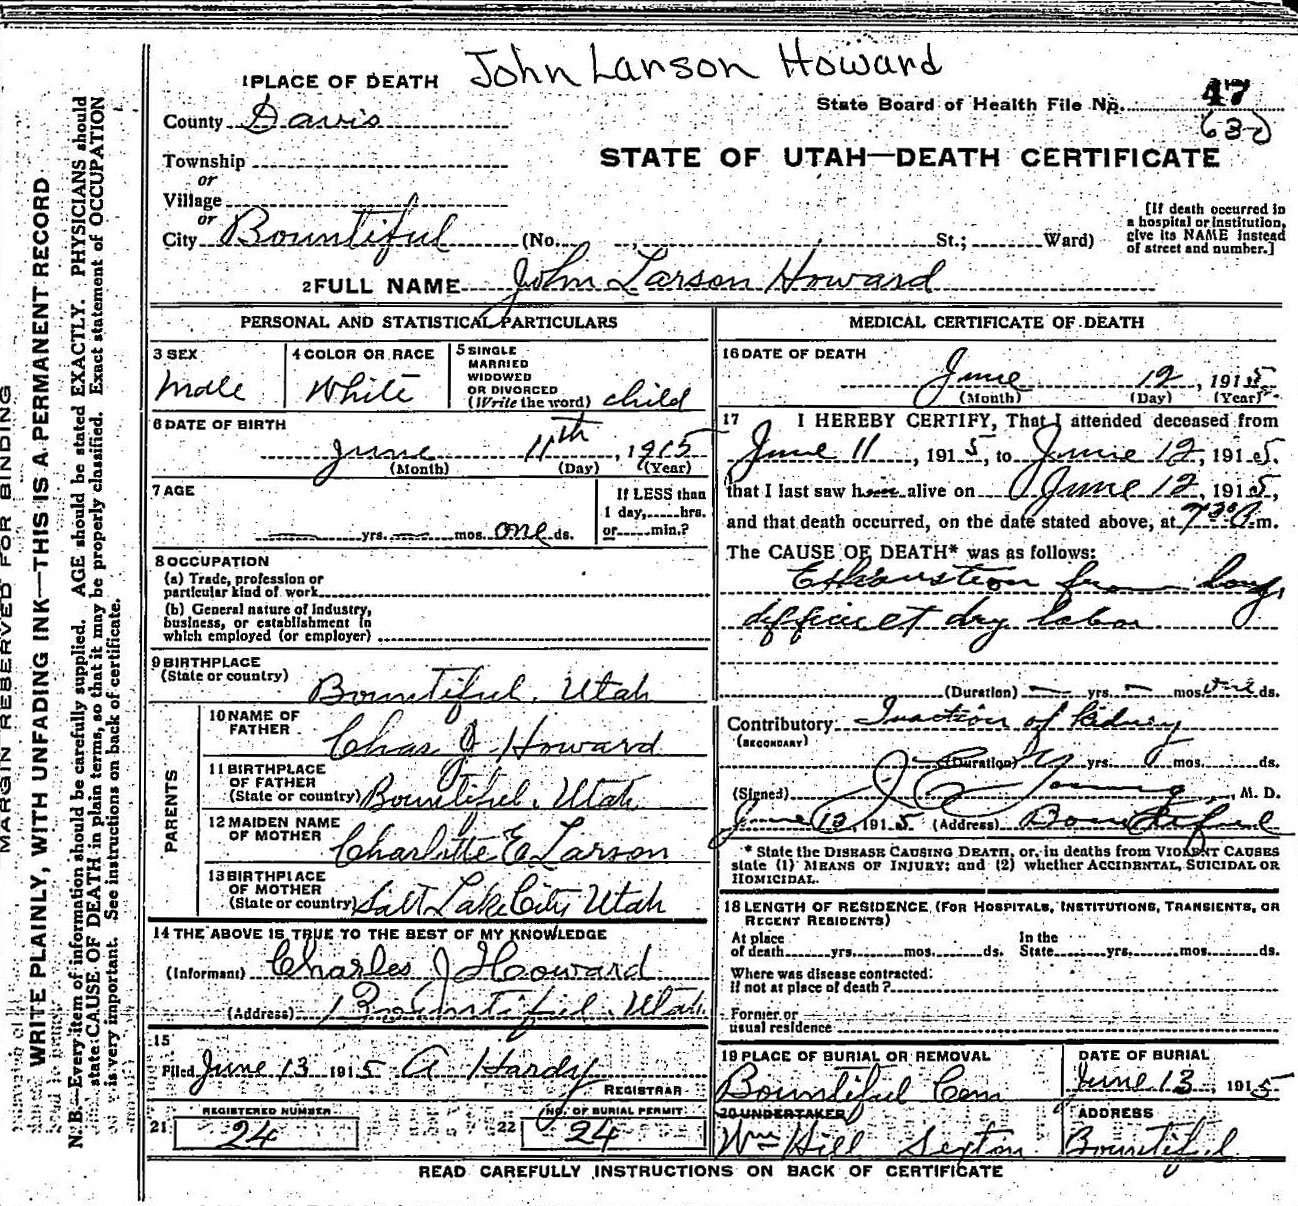 John Larson Howard
1 PLACE OF DEATH
State Board of Health File No. 47
County Davis
STATE OF UTAH—DEATH CERTIFICATE
Township
or
Village
or
City Bountiful (No. , St.; Ward)
[If death occurred in
a hospital or institution,
give its NAME instead
of street and number.]
2 FULL NAME John Larson Howard
PERSONAL AND STATISTICAL PARTICULARS
3 SEX
Male
4 COLOR OR RACE
White
5 SINGLE
MARRIED
WIDOWED
OR DIVORCED
(Write the word) child
6 DATE OF BIRTH
June 11th, 1915
(Month) (Day) (Year)
7 AGE
yrs. mos. one ds.
If LESS than
1 day, hrs.
or min.?
8 OCCUPATION
(a) Trade, profession or
particular kind of work
(b) General nature of industry,
business, or establishment in
which employed (or employer)
9 BIRTHPLACE
(State or country)
Bountiful, Utah
PARENTS
10 NAME OF
FATHER
Chas J Howard
11 BIRTHPLACE
OF FATHER
(State or country) Bountiful, Utah
12 MAIDEN NAME
OF MOTHER
Charlotte E Larson
13 BIRTHPLACE
OF MOTHER
(State or country) Salt Lake City Utah
14 THE ABOVE IS TRUE TO THE BEST OF MY KNOWLEDGE
(Informant) Charles J Howard
(Address) Bountiful, Utah
15
Filed June 13 1915 A Hardy
REGISTRAR
21 REGISTERED NUMBER
24
22 NO. OF BURIAL PERMIT
24
MEDICAL CERTIFICATE OF DEATH
16 DATE OF DEATH
June 12, 1915
(Month) (Day) (Year)
17 I HEREBY CERTIFY, That I attended deceased from
June 11, 1915, to June 12, 1915.
that I last saw h alive on June 12, 1915,
and that death occurred, on the date stated above, at m.
The CAUSE OF DEATH* was as follows:
Exhaustion from long,
difficult dry labor
(Duration) yrs. mos. one ds.
Contributory Inaction of Kidney
(SECONDARY)
(Duration) yrs. mos. ds.
(Signed) Young, M. D.
June 13, 1915 (Address) Bountiful
* State the DISEASE CAUSING DEATH, or, in deaths from VIOLENT CAUSES
state (1) MEANS OF INJURY; and (2) whether ACCIDENTAL, SUICIDAL OR
HOMICIDAL.
18 LENGTH OF RESIDENCE (FOR HOSPITALS, INSTITUTIONS, TRANSIENTS, OR
RECENT RESIDENTS)
At place
of death yrs. mos. ds.
In the
State yrs. mos. ds.
Where was disease contracted
If not at place of death?
Former or
usual residence
19 PLACE OF BURIAL OR REMOVAL
Bountiful Cem
DATE OF BURIAL
June 13, 1915
20 UNDERTAKER
Wm Hill Sexton
ADDRESS
Bountiful
READ CAREFULLY INSTRUCTIONS ON BACK OF CERTIFICATE
MARGIN RESERVED FOR BINDING
WRITE PLAINLY, WITH UNFADING INK—THIS IS A PERMANENT RECORD
N. B.—Every item of information should be carefully supplied. AGE should be stated EXACTLY. PHYSICIANS should
state CAUSE OF DEATH in plain terms, so that it may be properly classified. Exact statement of OCCUPATION
is very important. See instructions on back of certificate.